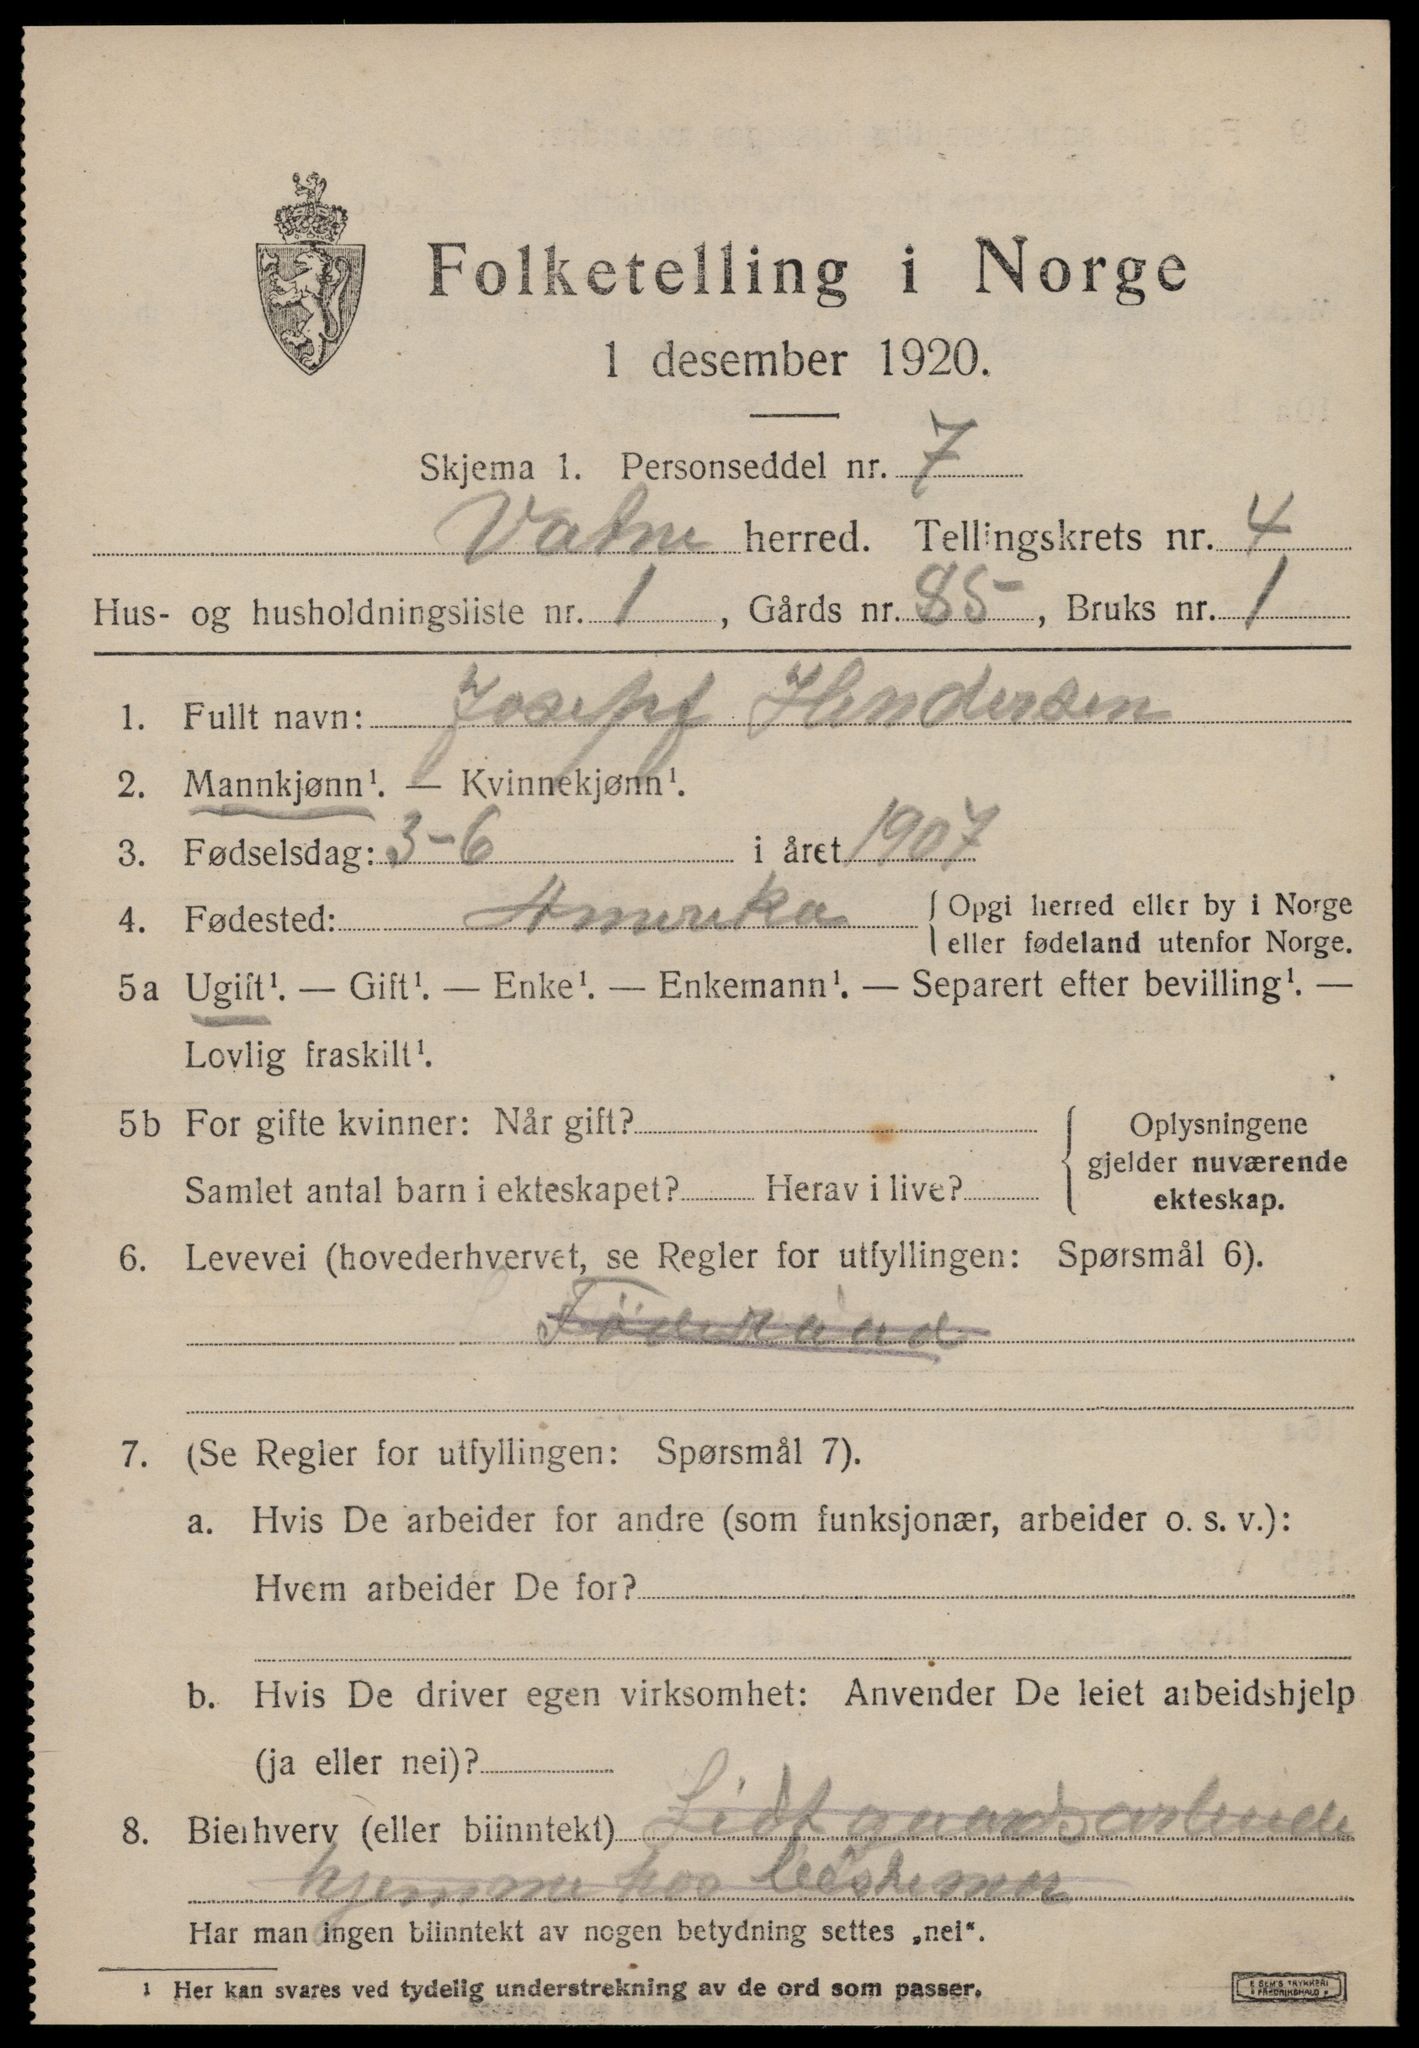 Folketelling i Norge
1 desember 1920.
Skjema 1. Personseddel nr. 7
Vatne herred. Tellingskrets nr. 4
Hus- og husholdningsliste nr. 1, Gårds nr. 85, Bruks nr. 1
1. Fullt navn: Josepf Hendersen
2. Mannkjønn¹. — Kvinnekjønn¹.
3. Fødselsdag: 3-6 i året 1907
4. Fødested: Amerika {Opgi herred eller by i Norge
eller fødeland utenfor Norge.
5a Ugift¹. — Gift¹. — Enke¹. — Enkemann¹. — Separert efter bevilling¹. —
Lovlig fraskilt¹.
5b For gifte kvinner: Når gift? { Oplysningene
gjelder nuværende
Samlet antal barn i ekteskapet? Herav i live? ekteskap.
6. Levevei (hovederhvervet, se Regler for utfyllingen: Spørsmål 6).
Føderaad
7. (Se Regler for utfyllingen: Spørsmål 7).
a. Hvis De arbeider for andre (som funksjonær, arbeider o. s. v.):
Hvem arbeider De for?
b. Hvis De driver egen virksomhet: Anvender De leiet arbeidshjelp
(ja eller nei)?
8. Bierhverv (eller biinntekt) Lidt gaardsarbeide
hjemme hos bestemor
Har man ingen biinntekt av nogen betydning settes „nei“.
¹ Her kan svares ved tydelig understrekning av de ord som passer.
E SEM'S TRYKKERI
FREDRIKSHALD